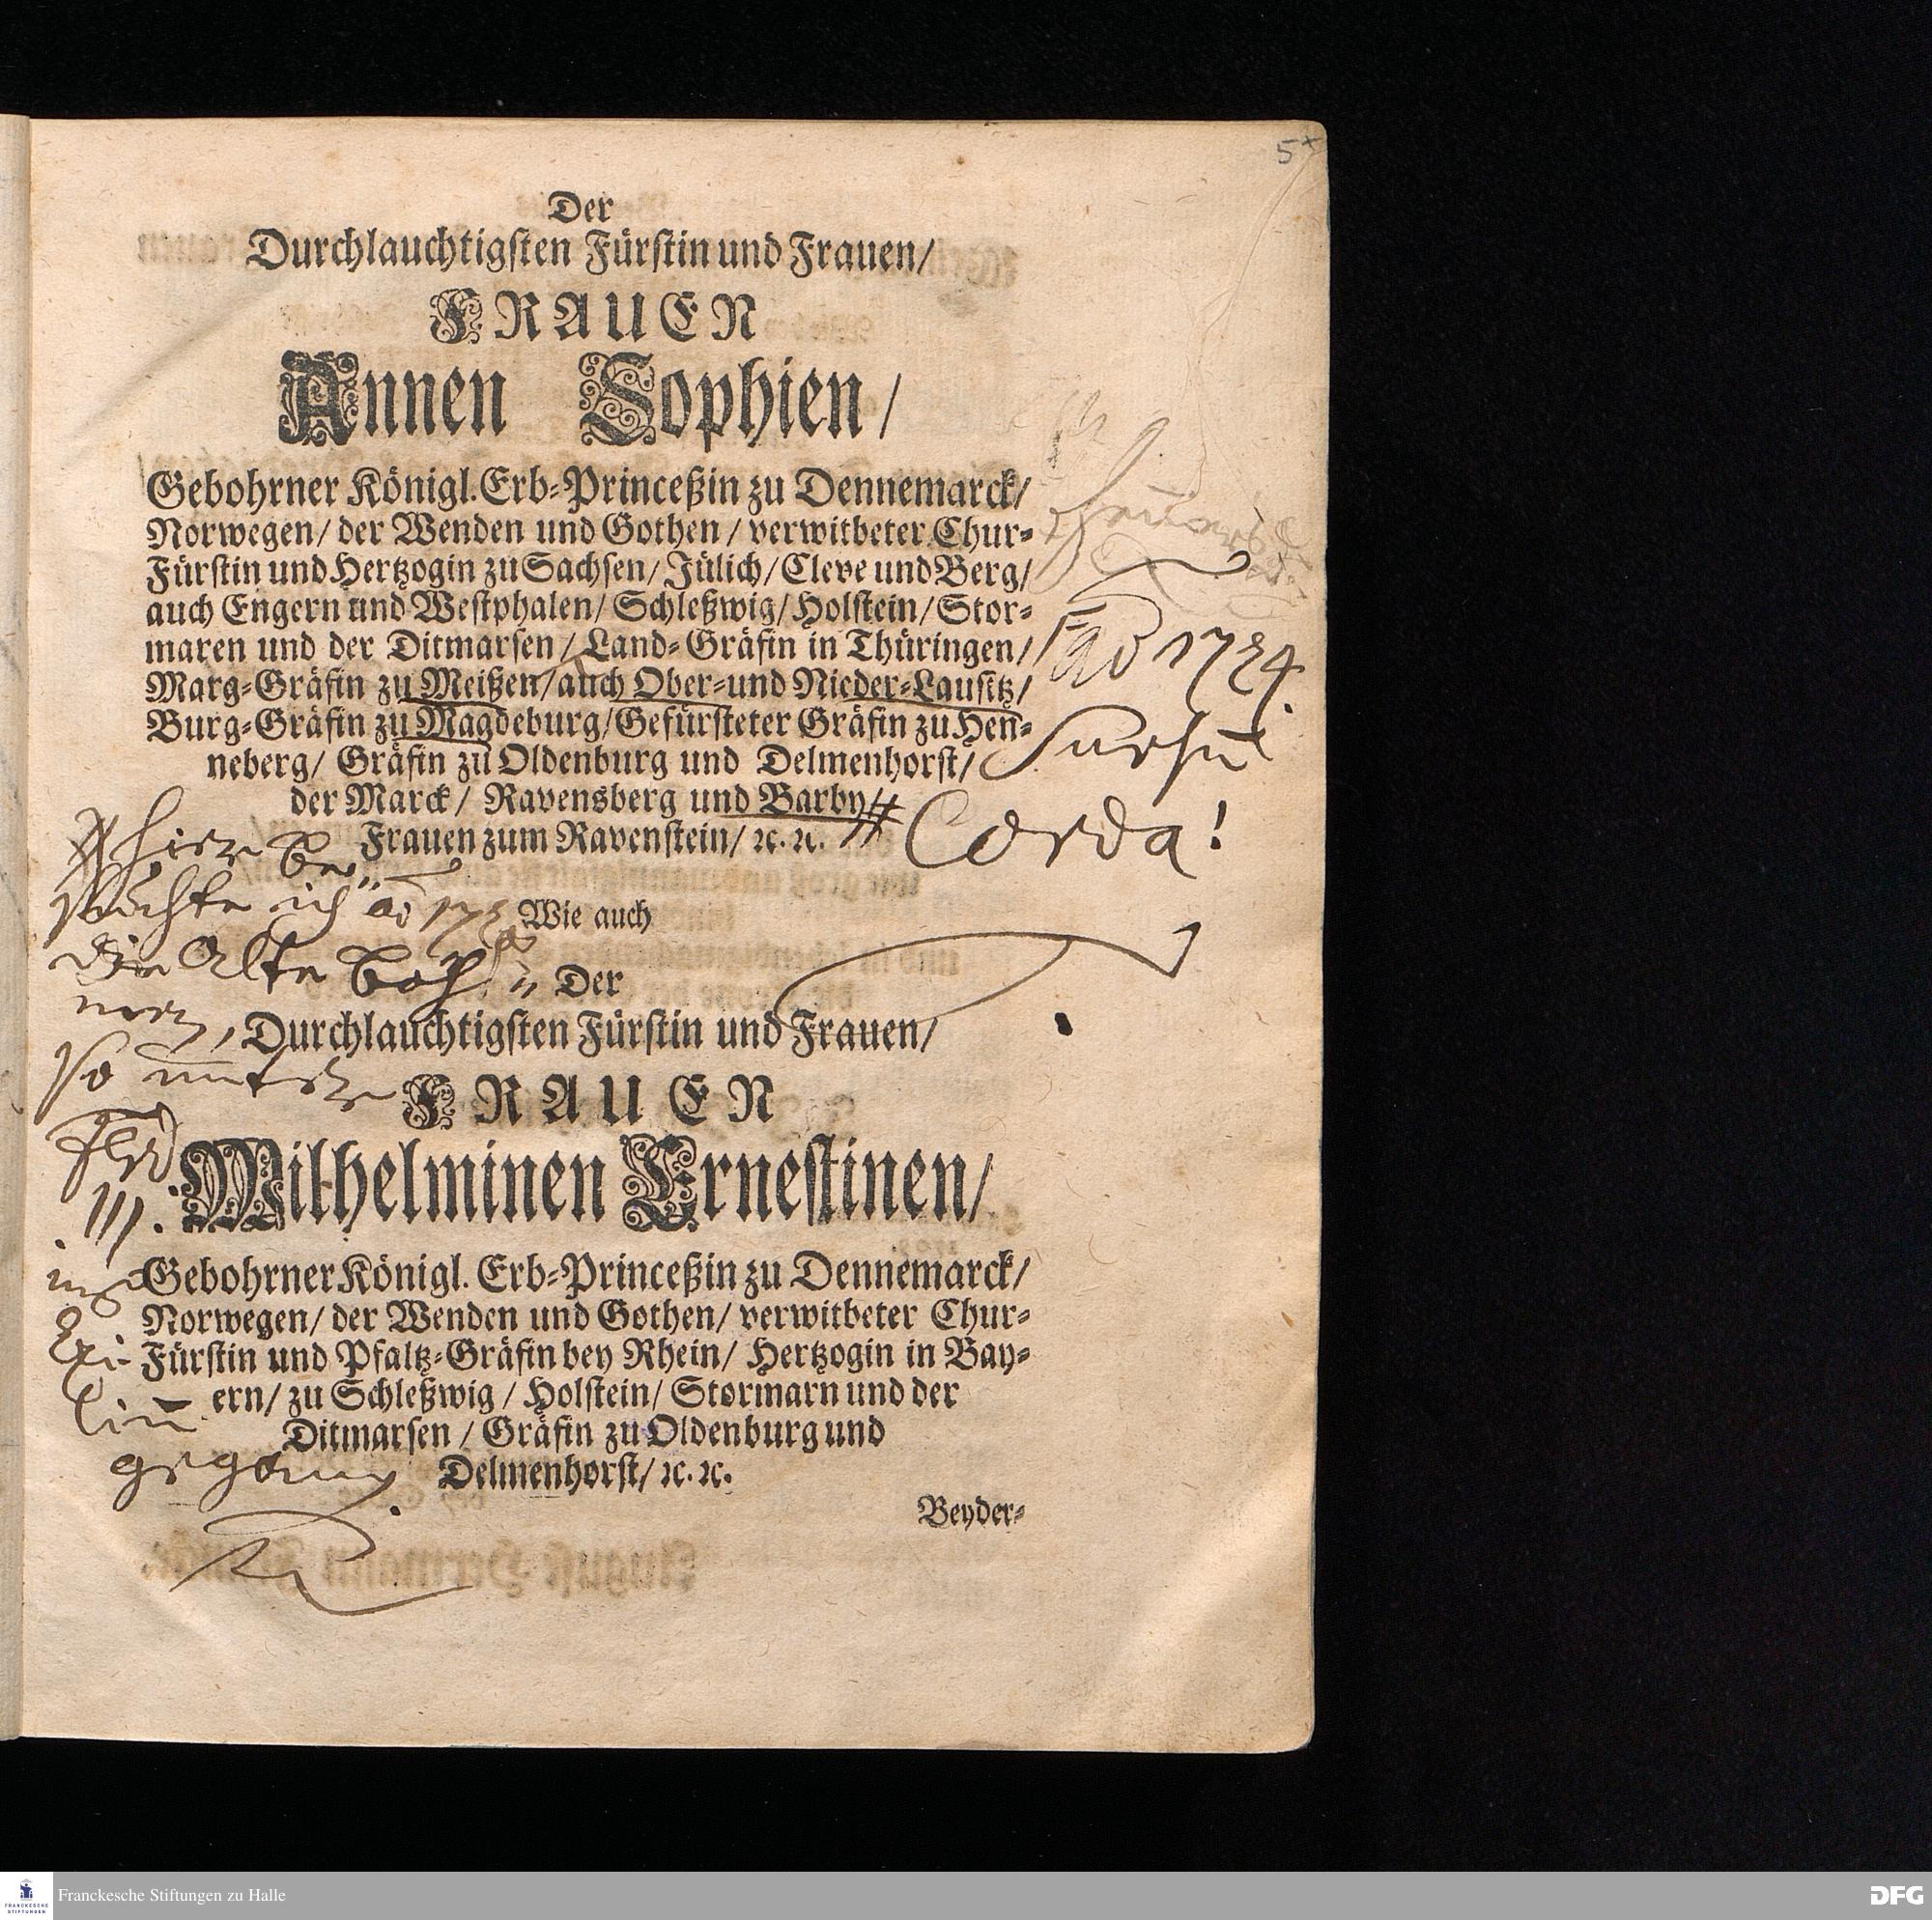 5
Der
Durchlauchtigsten Fürstin und Frauen/
FRAUEN
Annen Sophien/
Gebohrner Königl. Erb-Princeßin zu Dennemarck/
Norwegen/ der Wenden und Gothen/ verwitbeter Chur-
Fürstin und Hertzogin zu Sachsen/ Jülich/ Cleve und Berg/
auch Engern und Westphalen/ Schleßwig/ Holstein/ Stor-
maren und der Ditmarsen/ Land-Gräfin in Thüringen/
Marg-Gräfin zu Meißen/ auch Ober- und Nieder-Lausitz/
Burg-Gräfin zu Magdeburg/ Gefürsteter Gräfin zu Hen-
neberg/ Gräfin zu Oldenburg und Delmenhorst/
der Marck/ Ravensberg und Barby/
Frauen zum Ravenstein/ ꝛc. ꝛc.
Wie auch
Der
Durchlauchtigsten Fürstin und Frauen/
FRAUEN
Wilhelminen Ernestinen/
Gebohrner Königl. Erb-Princeßin zu Dennemarck/
Norwegen/ der Wenden und Gothen/ verwitbeter Chur-
Fürstin und Pfaltz-Gräfin bey Rhein/ Hertzogin in Bay-
ern/ zu Schleßwig/ Holstein/ Stormarn und der
Ditmarsen/ Gräfin zu Oldenburg und
Delmenhorst/ ꝛc. ꝛc.
Beyder-
1724.
Sursum
Corda!
ich
die Alte
so unter
III.
ins
Exi-
lium
gegangen.
Franckesche Stiftungen zu Halle
FRANCKESCHE
STIFTUNGEN
DFG